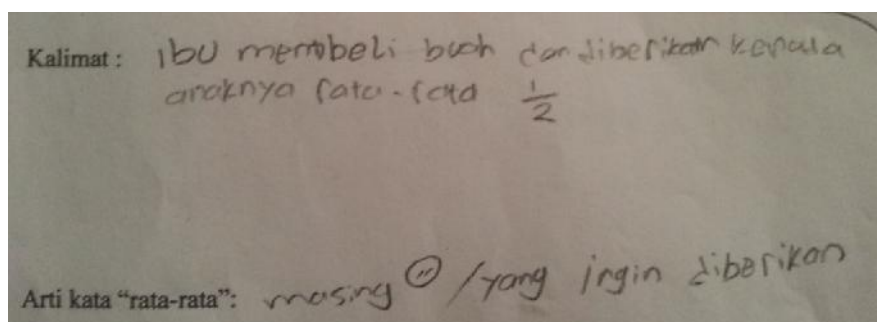 Kalimat : ibu membeli buah dan diberikan kepada
anaknya rata-rata 1/2
Arti kata “rata-rata”: masing" /yang ingin diberikan